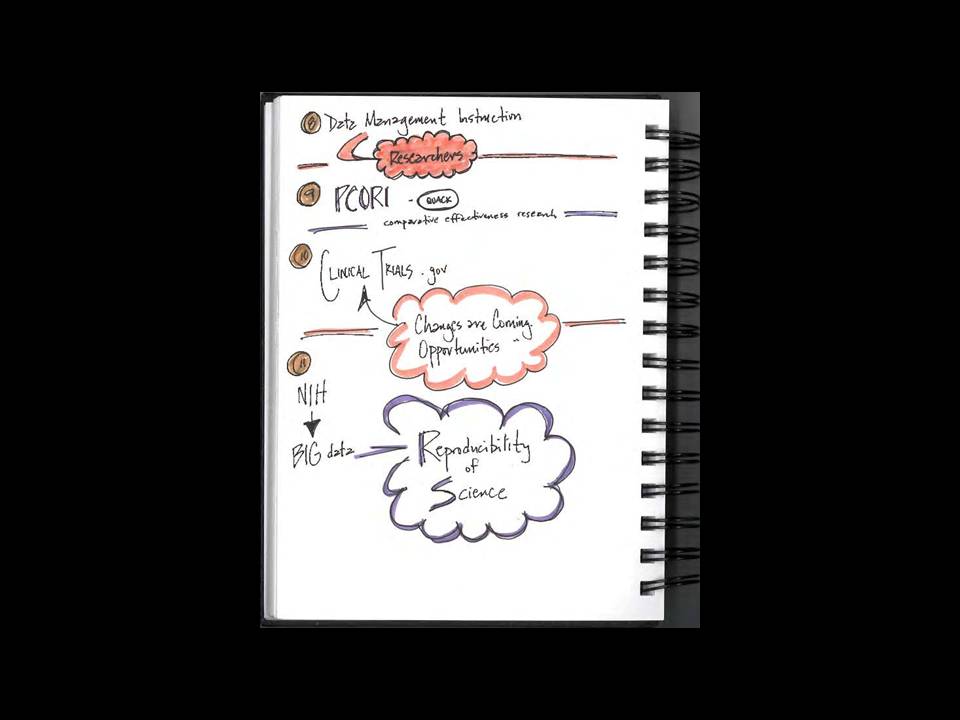 8 Data Management Instruction
Researchers
9 PCORI - QUACK
comparative effectiveness research
10
CLINICAL TRIALS.gov
Changes are Coming.
Opportunities
11
NIH
BIG data
Reproducibility
of
Science